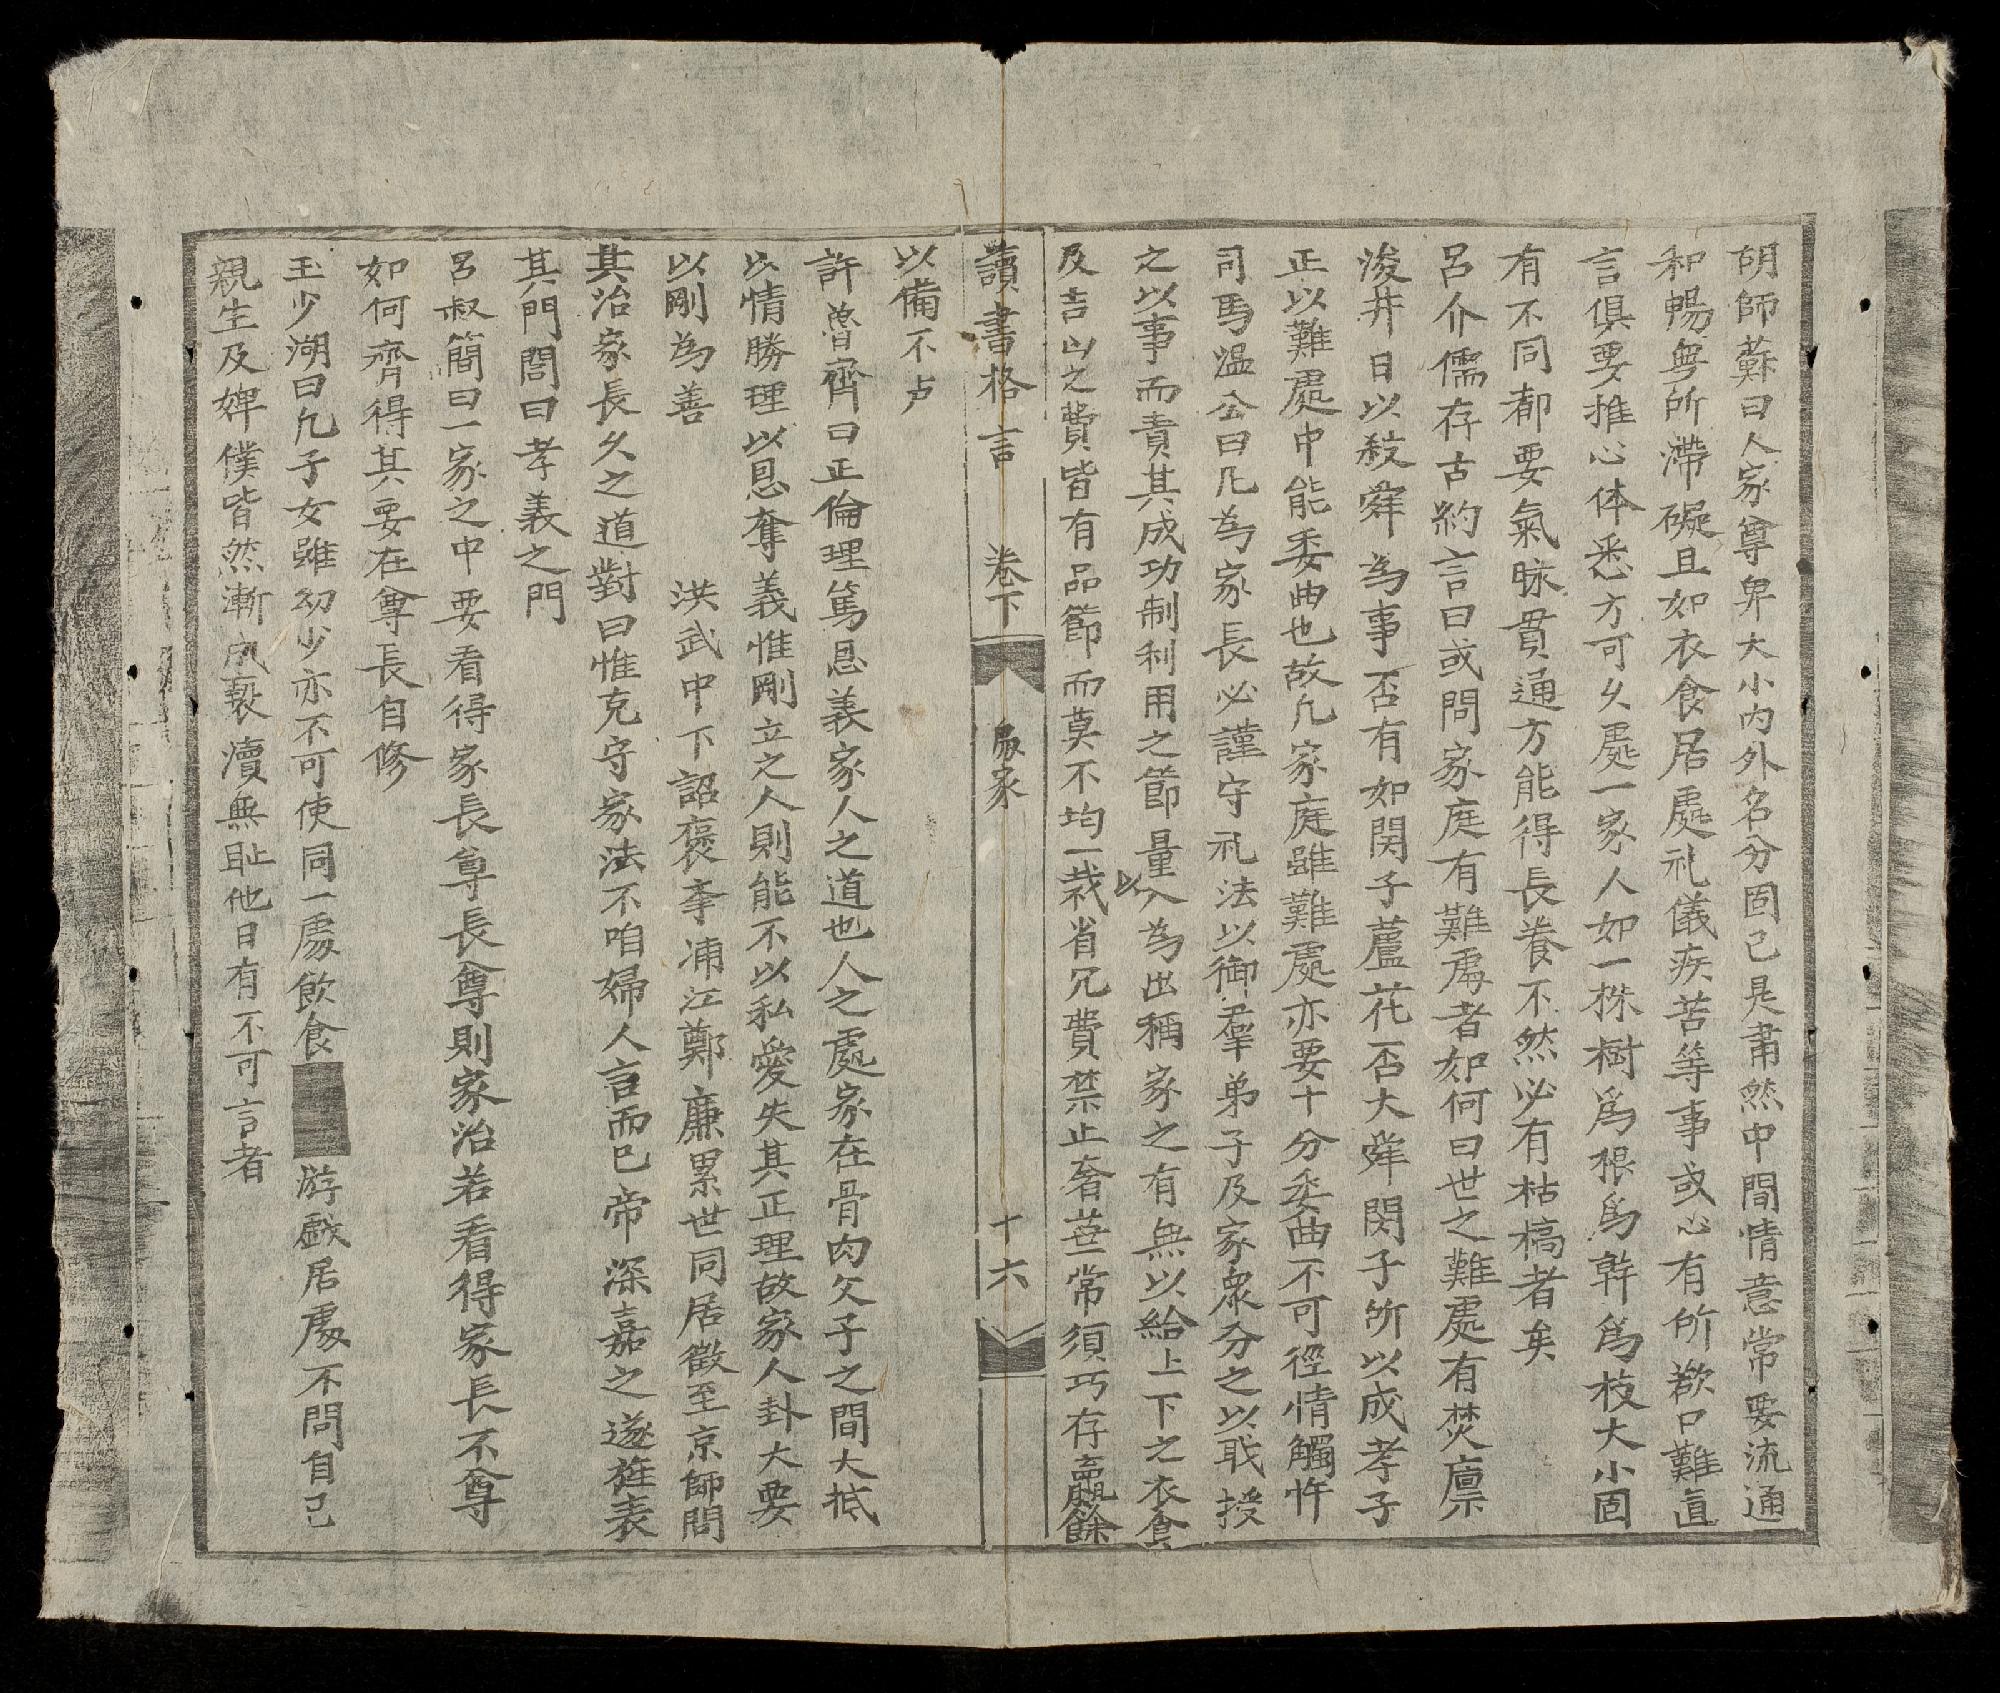 胡師蘇曰人家尊卑大小內外名分固已是肅然中間情意常要流通
和暢無所滯礙且如衣食居處礼儀疾苦等事或心有所欲口難直
言俱要推心体悉方可久處一家人如一株樹爲根爲幹爲枝大小固
有不同都要氣脉貫通方能得長養不然必有枯槁者矣
呂介儒存古約言曰或問家庭有難處者如何曰世之難處有焚廩
浚井日以殺舜為事否有如閔子蘆花否大舜閔子所以成孝子
正以難處中能委曲也故凢家庭雖難處亦要十分委曲不可徑情觸忤
司馬溫公曰凢為家長必謹守礼法以御羣弟子及家衆分之以職授
之以事而責其成功制利用之節量入以為出稱家之有無以給上下之衣食
及吉凶之費皆有品節而莫不均一裁省冗費禁止奢華常須巧存贏餘
讀書格言 卷下 處家 十六
以備不虞
許魯齊曰正倫理篤恩義家人之道也人之處家在骨肉父子之間大抵
以情勝理以恩奪義惟剛立之人則能不以私愛失其正理故家人卦大要
以剛為善 洪武中下詔褒孝浦江鄭廉累世同居徵至京師問
其治家長久之道對曰惟克守家法不咱婦人言而已帝深嘉之遂旌表
其門閭曰孝義之門
呂叔簡曰一家之中要看得家長尊長尊則家治若看得家長不尊
如何齊得其要在尊長自修
王少湖曰凢子女雖幼少亦不可使同一處飲食 游戯居處不問自己
親生及婢僕皆然漸成褻瀆無耻他日有不可言者